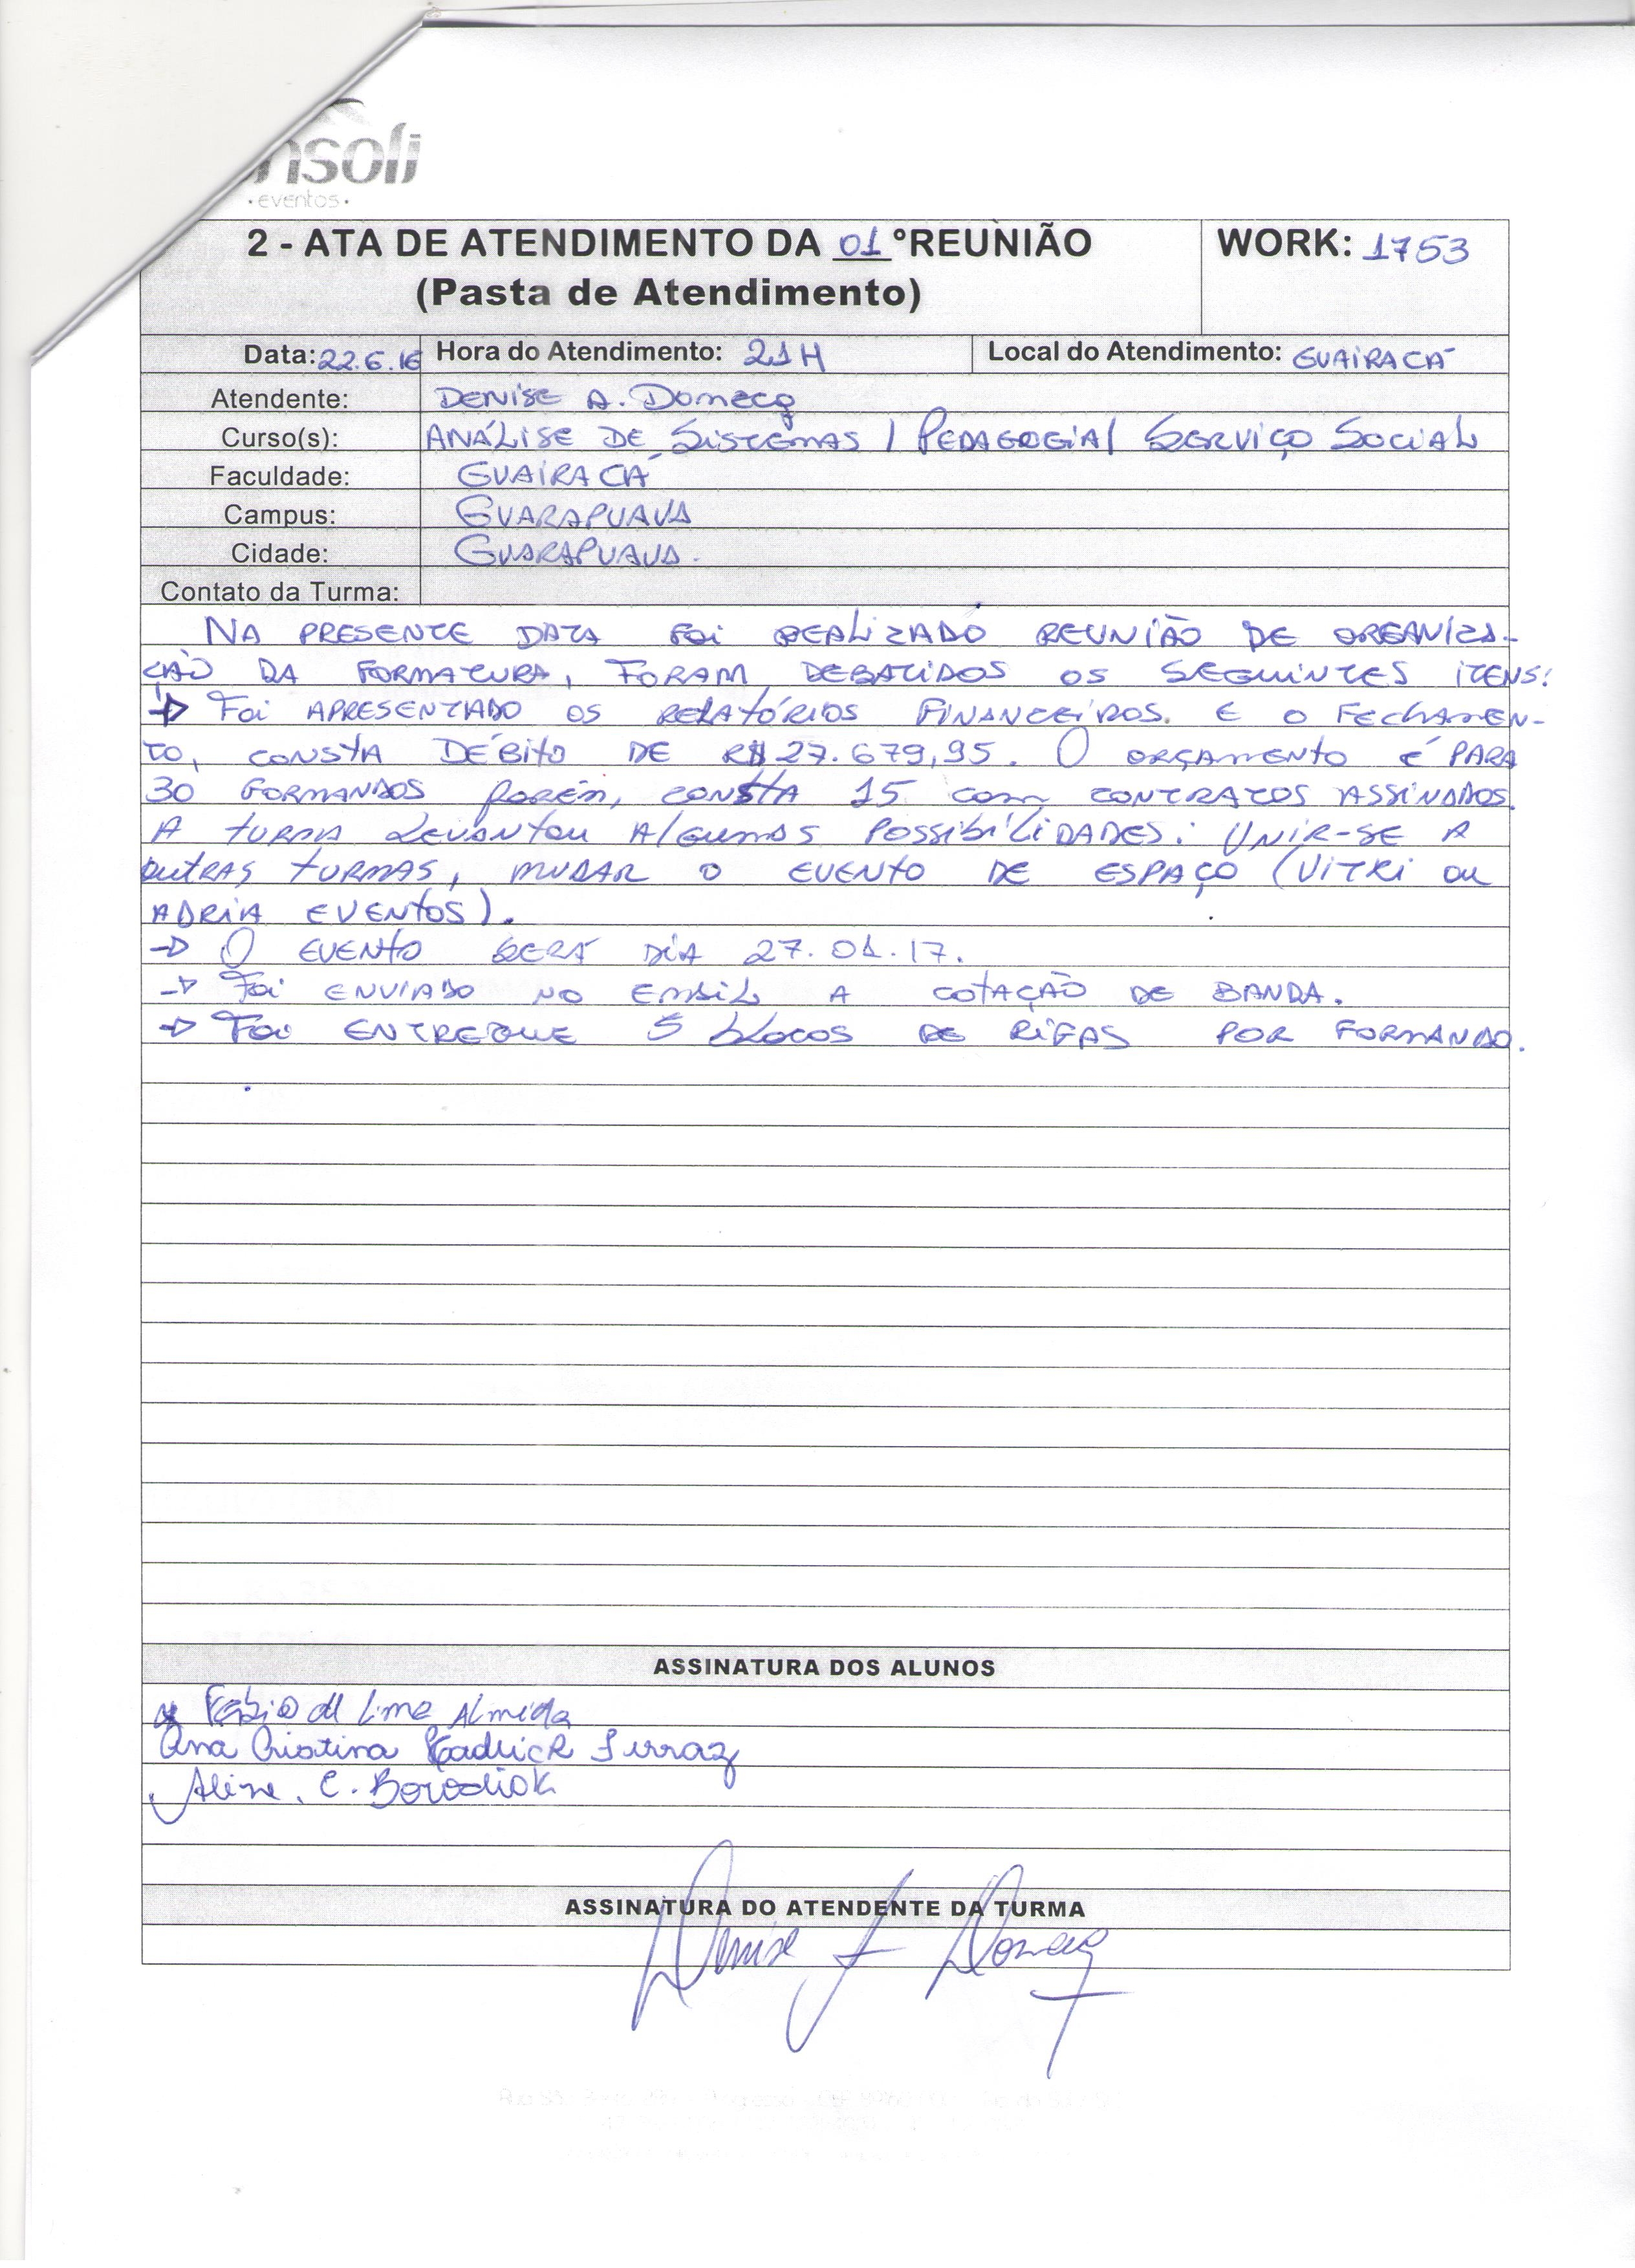 nsoli
•eventos•
2 - ATA DE ATENDIMENTO DA 01 °REUNIÃO
(Pasta de Atendimento)
WORK: 1753
Data: 22.6.16 Hora do Atendimento: 21H Local do Atendimento: GUAIRACÁ
Atendente: DENISE A. Domecq
Curso(s): ANÁLISE DE SISTEMAS / PEDAGOGIA / SERVIÇO SOCIAL
Faculdade: GUAIRACÁ
Campus: GUARAPUAVA
Cidade: GUARAPUAVA.
Contato da Turma:
NA PRESENTE DATA FOI REALIZADO REUNIÃO DE ORGANIZA-
ÇÃO DA FORMATURA, FORAM DEBATIDOS OS SEGUINTES ITENS:
→ FOI APRESENTADO OS RELATÓRIOS FINANCEIROS. E O FECHAMEN-
TO, CONSTA DÉBITO DE R$ 27.679,95. O ORÇAMENTO É PARA
30 FORMANDOS PORÉM, CONSTA 15 COM CONTRATOS ASSINADOS.
A TURMA LEVANTOU ALGUMAS POSSIBILIDADES: UNIR-SE A
OUTRAS TURMAS, MUDAR O EVENTO DE ESPAÇO (VITRI OU
ADRIA EVENTOS).
→ O EVENTO SERÁ DIA 27.01.17.
→ FOI ENVIADO NO EMAIL A COTAÇÃO DE BANDA.
→ FOI ENTREGUE 5 BLOCOS DE RIFAS POR FORMANDO.
ASSINATURA DOS ALUNOS
Fabio de Lima Almeida
Ana Cristina
Aline. C.
ASSINATURA DO ATENDENTE DA TURMA
Denise A Domecq